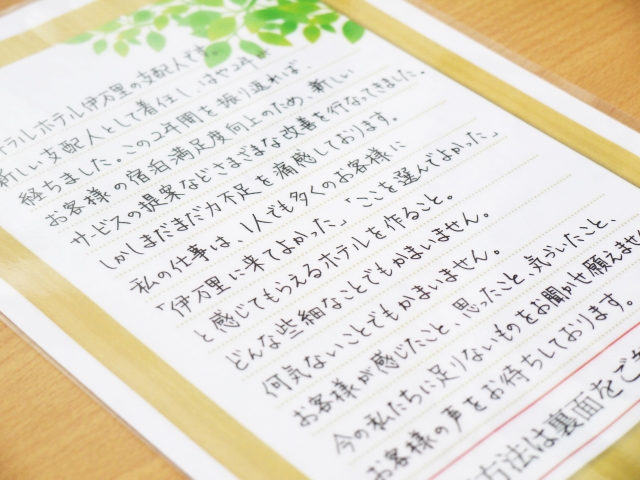 ラルホテル伊万里の支配人です。
新しい支配人として着任し、はや2年が
経ちました。この2年間を振り返れば、
お客様の宿泊満足度向上のため、新しい
サービスの提案などさまざまな改善を行なってきました。
しかしまだまだ力不足を痛感しております。
私の仕事は、1人でも多くのお客様に
「伊万里に来てよかった」「ここを選んでよかった」
と感じてもらえるホテルを作ること。
どんな些細なことでもかまいません。
何気ないことでもかまいません。
お客様が感じたこと、思ったこと、気づいたこと、
今の私たちに足りないものをお聞かせ願えませ
お客様の声をお待ちしております。
方法は裏面をご